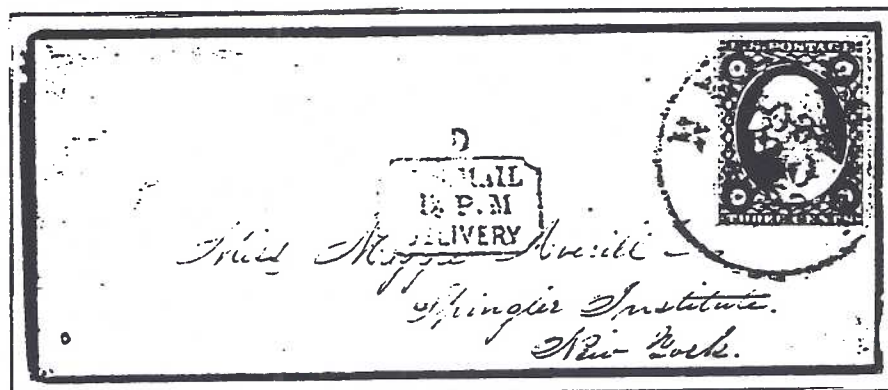 U.S. POSTAGE
THREE CENTS
D
MAIL
P.M
DELIVERY
Miss Maggie Averill
Spingler Institute.
New York.